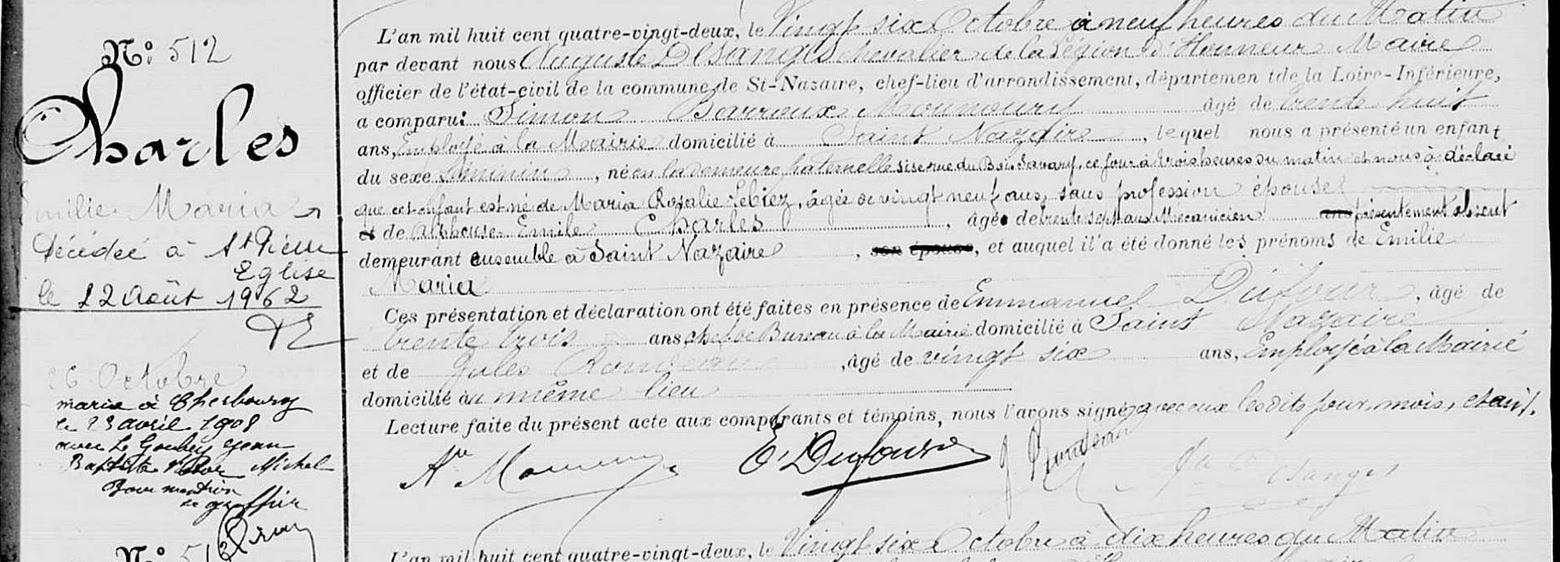 N° 512
Charles
Emilie Maria
Décédée à St Pierre
Eglise
le 22 Août 1962
26 Octobre
marié à Cherbourg
le 23 avril 1908
avec Le Goubey Jean
Baptiste Victor Michel
Pour mention
Le greffier
L'an mil huit cent quatre-vingt-deux, le Vingt six Octobre à neuf heures du Matin
par devant nous Auguste Desanges chevalier de la Légion d'Honneur Maire
officier de l'état-civil de la commune de St-Nazaire, chef-lieu d'arrondissement, départemen tde la Loire-Inférieure,
a comparu: Simon Barroux Moumoury âgé de trente huit
ans, Employé à la Mairie domicilié à Saint Nazaire, lequel nous a présenté un enfant
du sexe féminin, né en la demeure paternelle sise rue du Bois Savary, ce jour à trois heures du matin et nous a déclaré
que cet enfant est né de Maria Rosalie Lebiez, âgée de vingt neuf ans, sans profession épouse
et de Alphonse Emile Charles, âgé de trente sept ans Mécanicien ans présentement absent
demeurant ensemble à Saint Nazaire, son épouse, et auquel il a été donné les prénoms de Emilie
Maria
Ces présentation et déclaration ont été faites en présence de Emmanuel Dufour, âgé de
trente trois ans chef de Bureau à la Mairie domicilié à Saint Nazaire
et de Jules Rondeau, âgé de vingt six ans, Employé à la Mairie
domicilié au même lieu
Lecture faite du présent acte aux comparants et témoins, nous l'avons signé avec eux les dits jour, mois, et an.
E. Dufour J Rondeau
Desanges
N° 513
L'an mil huit cent quatre-vingt-deux, le Vingt six Octobre à dix heures du Matin